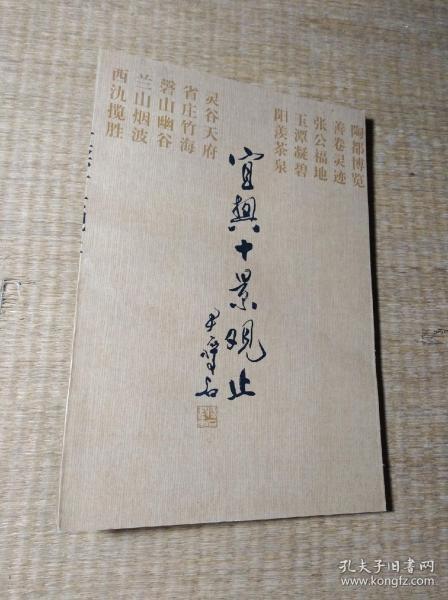 陶都博览
善卷灵迹
张公福地
玉潭凝碧
阳羡茶泉
宜興十景观止
灵谷天府
省庄竹海
磬山幽谷
兰山烟波
西氿揽胜
孔夫子旧书网
book.kongfz.com